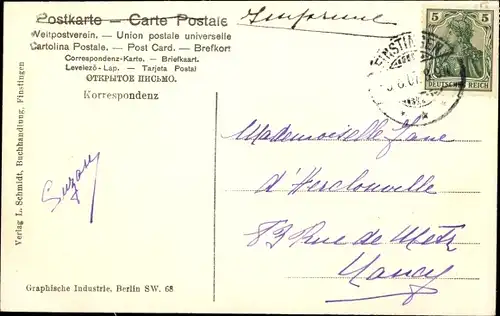 Postkarte — Carte Postale
Weltpostverein. — Union postale universelle
Cartolina Postale. — Post Card. — Brefkort
Correspondenz-Karte. — Briefkaart.
Levelező-Lap. — Tarjeta Postal
ОТКРЫТОЕ ПИСЬМО.
Korrespondenz
Imprimé
FINSTINGEN
5 5
DEUTSCHES REICH
Verlag L. Schmidt, Buchhandlung, Finstingen
Suzan
Mademoiselle Jane
d'Herclonville
83 Rue de Metz
Nancy
Graphische Industrie. Berlin SW. 68